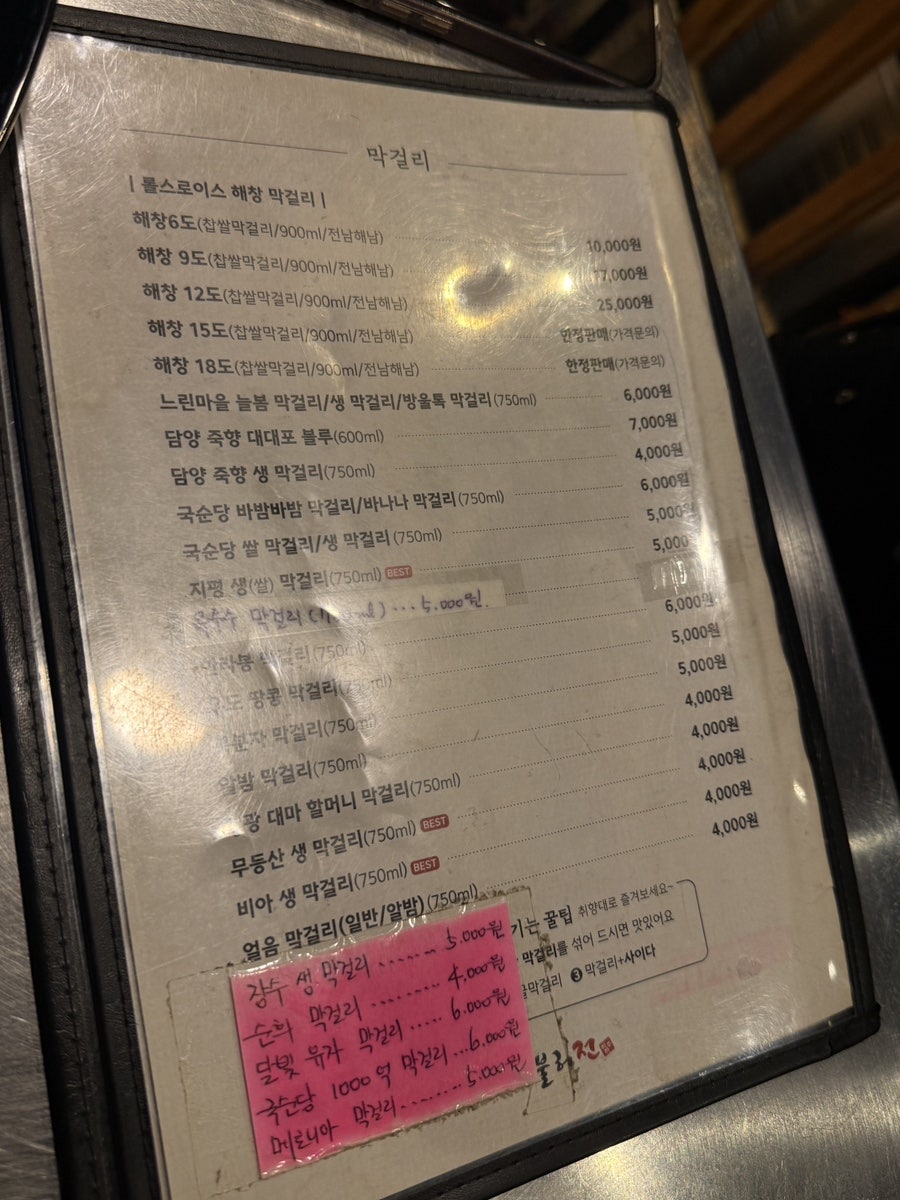 막걸리
| 롤스로이스 해창 막걸리 |
해창6도(찹쌀막걸리/900ml/전남해남) 10,000원
해창 9도(찹쌀막걸리/900ml/전남해남) 17,000원
해창 12도(찹쌀막걸리/900ml/전남해남) 25,000원
해창 15도(찹쌀막걸리/900ml/전남해남) 한정판매(가격문의)
해창 18도(찹쌀막걸리/900ml/전남해남) 한정판매(가격문의)
느린마을 늘봄 막걸리/생 막걸리/방울톡 막걸리(750ml) 6,000원
담양 죽향 대대포 블루(600ml) 7,000원
담양 죽향 생 막걸리(750ml) 4,000원
국순당 바밤바밤 막걸리/바나나 막걸리(750ml) 6,000원
국순당 쌀 막걸리/생 막걸리(750ml) 5,000원
지평 생(쌀) 막걸리(750ml) BEST 5,000
옥수수 막걸리 ... 5.000원
막걸리(750ml) 6,000원
땅콩 막걸리 5,000원
막걸리(750ml) 5,000원
알밤 막걸리(750ml) 4,000원
대마 할머니 막걸리(750ml) 4,000원
무등산 생 막걸리(750ml) BEST 4,000원
비아 생 막걸리(750ml) BEST 4,000원
얼음 막걸리(일반/알밤)(750ml) 4,000원
기는 꿀팁 취향대로 즐겨보세요~
막걸리를 섞어 드시면 맛있어요
꿀막걸리 ❸ 막걸리+사이다
장수 생 막걸리 ....... 5.000원
순희 막걸리 ......... 4,000원
달빛 유자 막걸리 ..... 6.000원
국순당 1000억 막걸리 ... 6.000원
막걸리 ........ 5.000원